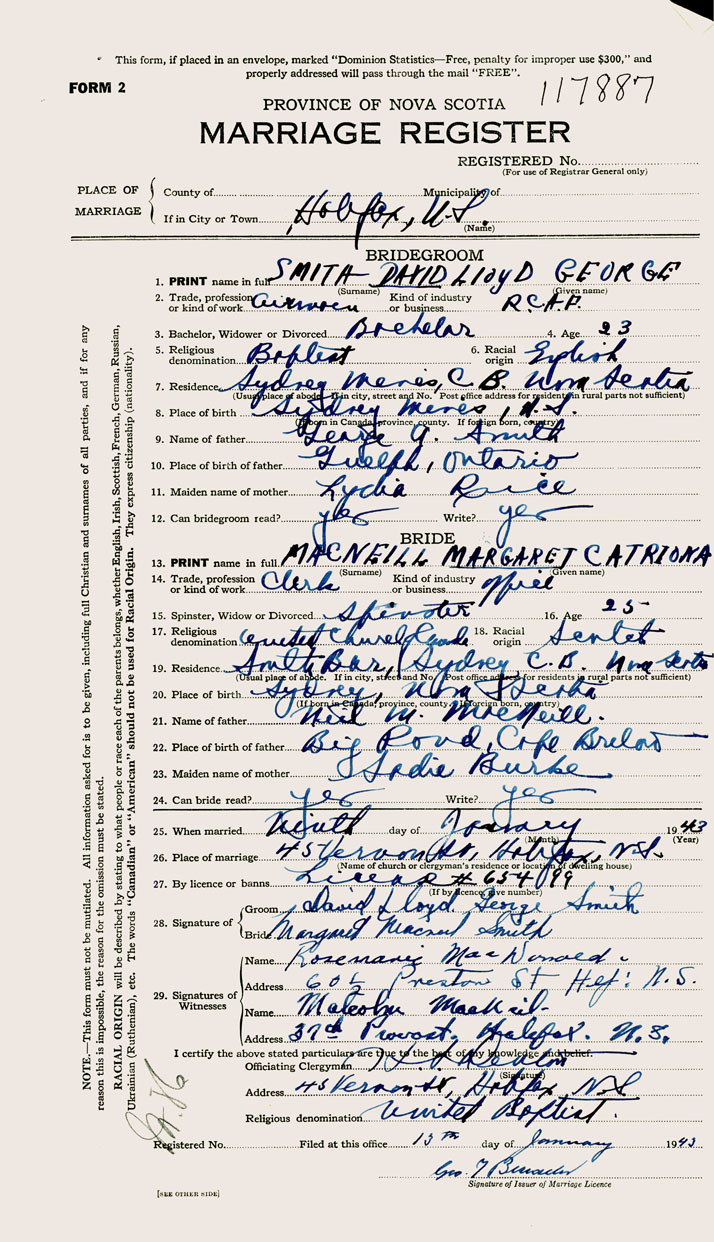 This form, if placed in an envelope, marked "Dominion Statistics—Free, penalty for improper use $300," and
properly addressed will pass through the mail "FREE".
FORM 2
117887
PROVINCE OF NOVA SCOTIA
MARRIAGE REGISTER
REGISTERED No.
(For use of Registrar General only)
PLACE OF MARRIAGE
County of Municipality of
If in City or Town Halifax, N.S.
(Name)
BRIDEGROOM
1. PRINT name in full SMITH DAVID LLOYD GEORGE
(Surname) (Given name)
2. Trade, profession or kind of work Airmen Kind of industry or business R.C.A.F.
3. Bachelor, Widower or Divorced Bachelor 4. Age 23
5. Religious denomination Baptist 6. Racial origin English
7. Residence Sydney Mines, C.B. Nova Scotia
(Usual place of abode. If in city, street and No. Post office address for residents in rural parts not sufficient)
8. Place of birth Sydney Mines, N.S.
(If born in Canada, province, county. If foreign born, country)
9. Name of father George G. Smith
10. Place of birth of father Guelph, Ontario
11. Maiden name of mother Lydia
12. Can bridegroom read? yes Write? yes
BRIDE
13. PRINT name in full MACNEILL MARGARET CATRIONA
(Surname) (Given name)
14. Trade, profession or kind of work Clerk Kind of industry or business office
15. Spinster, Widow or Divorced Spinster 16. Age 25
17. Religious denomination United Church Canada 18. Racial origin
19. Residence South Bar, Sydney C.B. Nova Scotia
(Usual place of abode. If in city, street and No. Post office address for residents in rural parts not sufficient)
20. Place of birth Sydney, Nova Scotia
(If born in Canada, province, county. If foreign born, country)
21. Name of father Neil M. MacNeill.
22. Place of birth of father Big Pond, Cape Breton
23. Maiden name of mother Sadie Burke
24. Can bride read? yes Write? yes
25. When married Ninth day of January 1943
(Month) (Year)
26. Place of marriage 45 Vernon St, Halifax, N.S.
(Name of church or clergyman's residence or location of dwelling house)
27. By licence or banns License # 65499
(If by licence, give number)
28. Signature of
Groom David Lloyd George Smith
Bride Margaret Macneil Smith
29. Signatures of Witnesses
Name Rosemarie MacDonald
Address 60½ Preston St Hfx. N.S.
Name Malcolm MacNeil
Address 37 Provost, Halifax. N.S.
I certify the above stated particulars are true to the best of my knowledge and belief.
Officiating Clergyman
(Signature)
Address 45 Vernon St, Halifax, N.S
Religious denomination United Baptist.
Registered No. Filed at this office 15th day of January 1943
Geo. T
Signature of Issuer of Marriage Licence
[SEE OTHER SIDE]
NOTE.—This form must not be mutilated. All information asked for is to be given, including full Christian and surnames of all parties, and if for any
reason this is impossible, the reason for the omission must be stated.
RACIAL ORIGIN will be described by stating to what people or race each of the parents belongs, whether English, Irish, Scottish, French, German, Russian,
Ukrainian (Ruthenian), etc. The words "Canadian" or "American" should not be used for Racial Origin. They express citizenship (nationality).